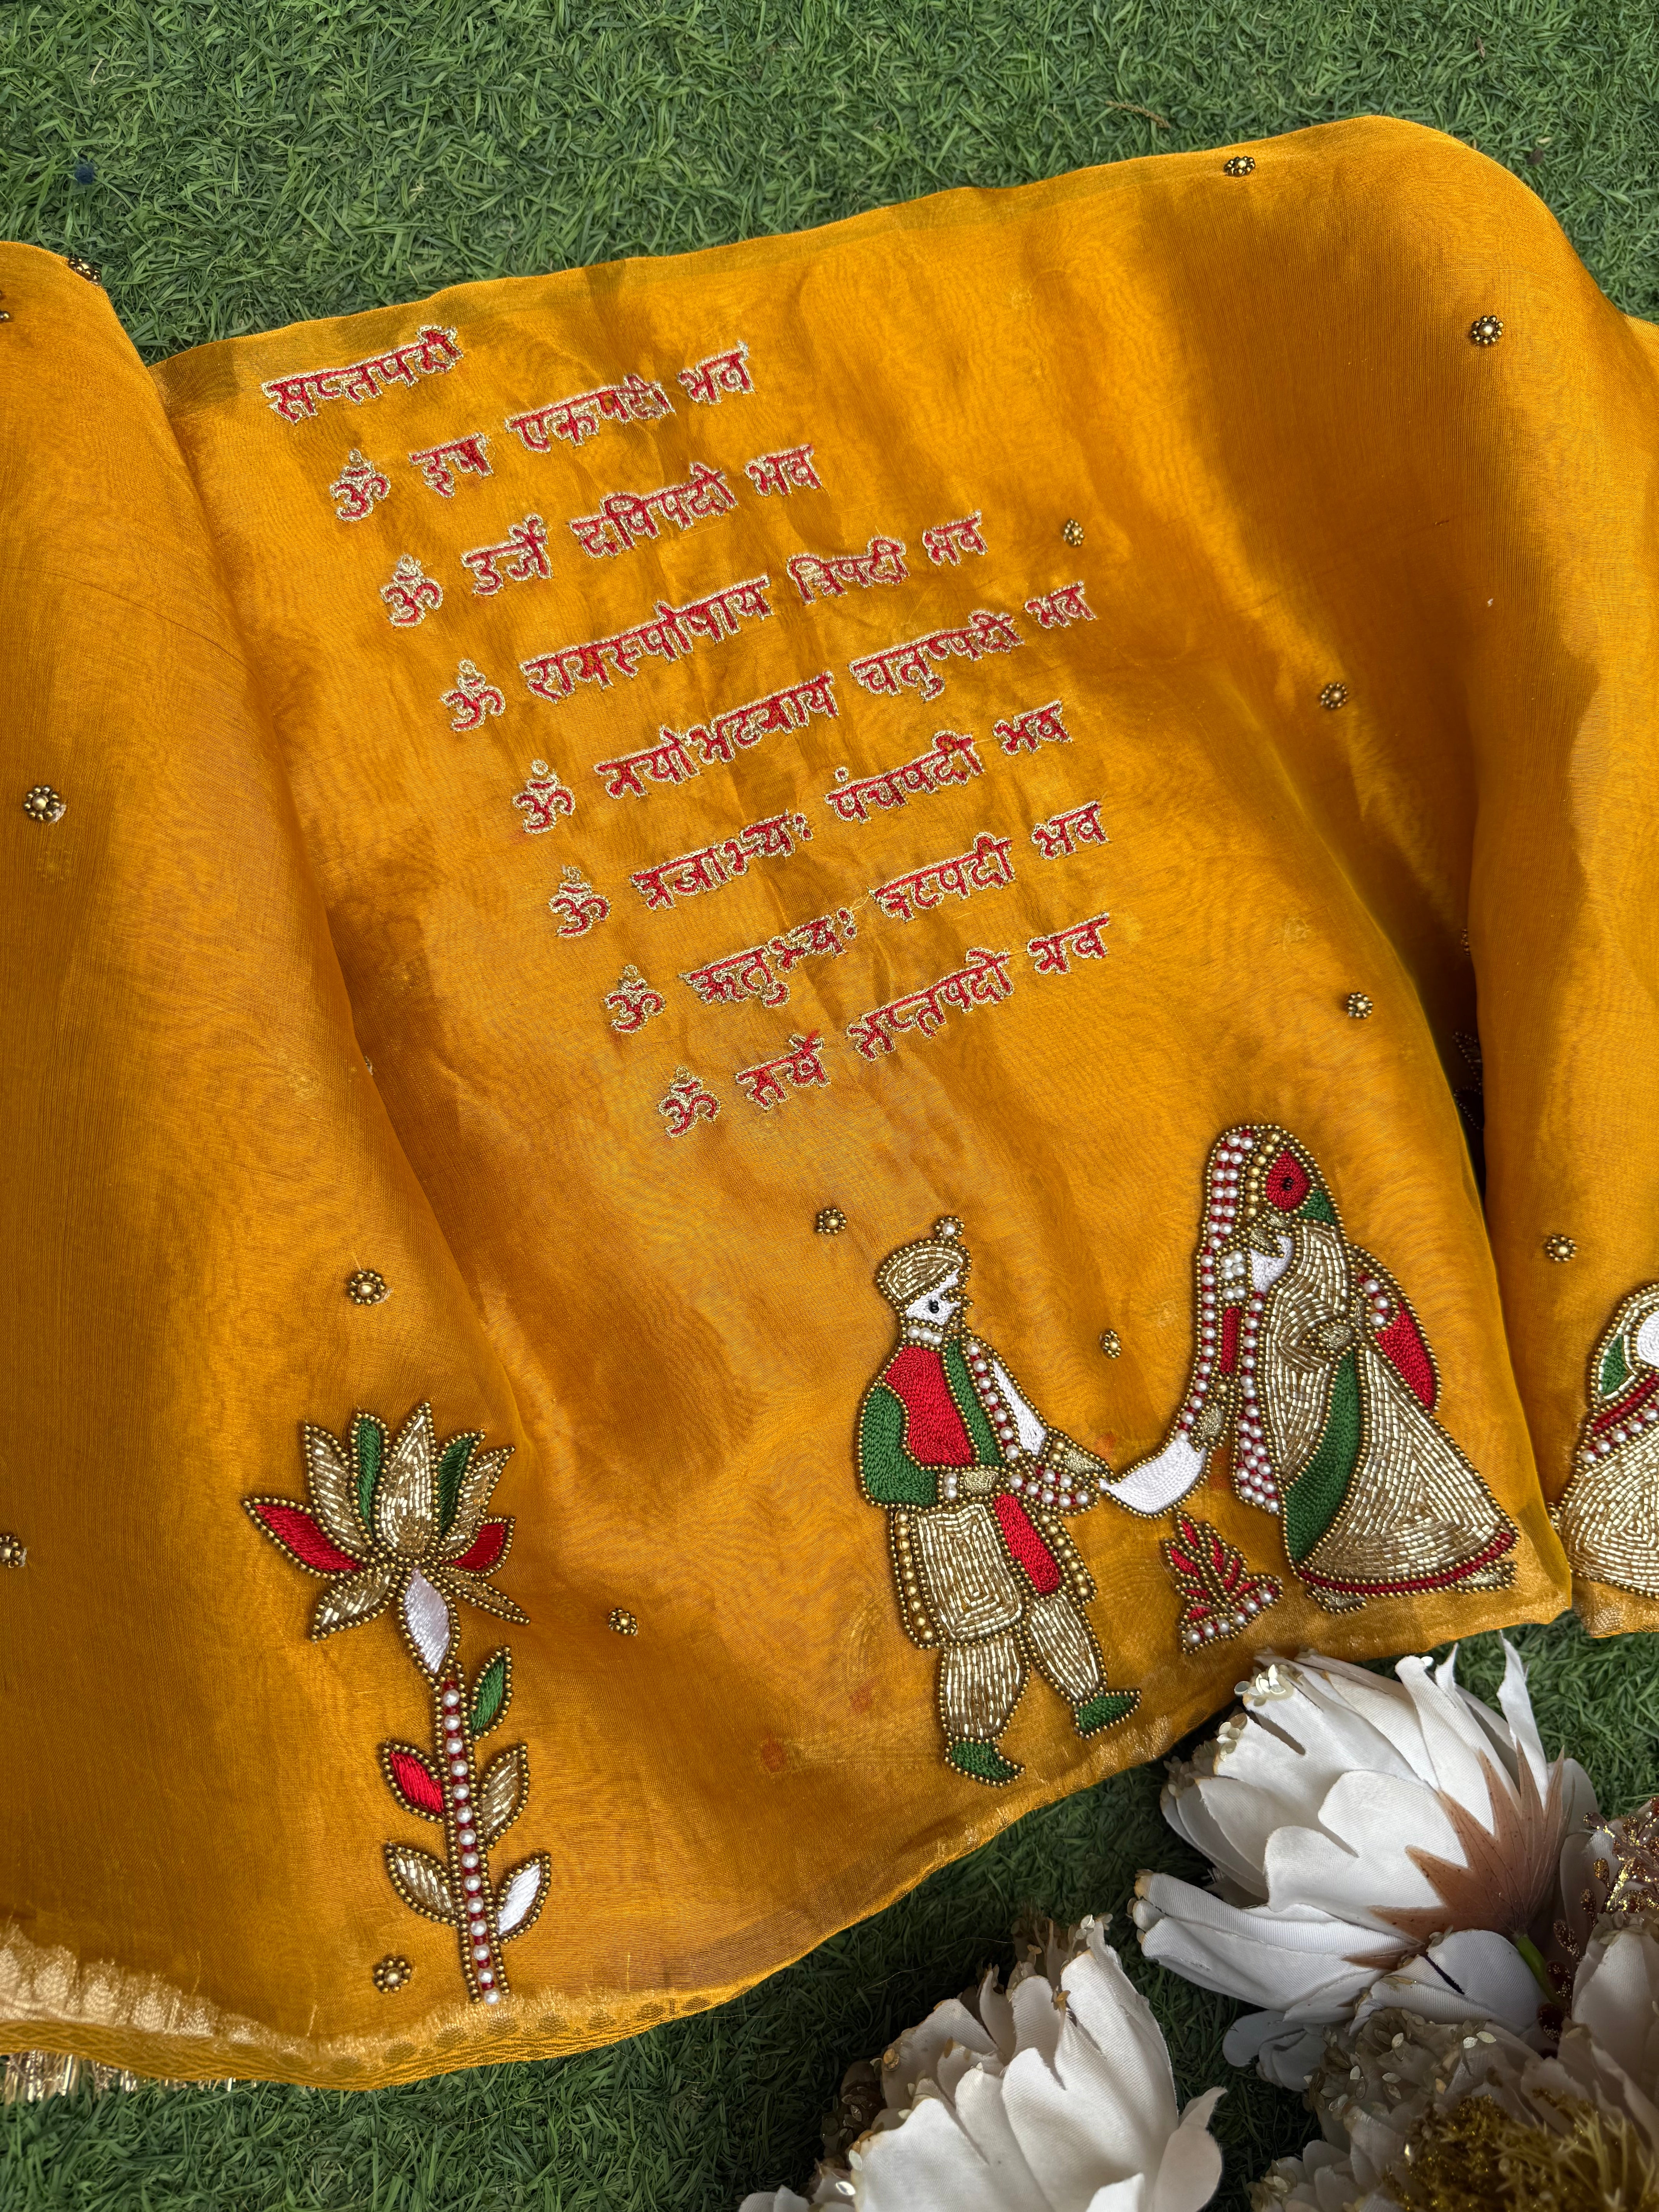 सप्तपदी
ॐ इष एकपदी भव
ॐ उर्जे दविपदी भव
ॐ रायस्पोषाय त्रिपदी भव
ॐ मयोभव्याय चतुष्पदी भव
ॐ प्रजाभ्यः पंचपदी भव
ॐ ऋतुभ्यः षटपदी भव
ॐ सखे सप्तपदी भव